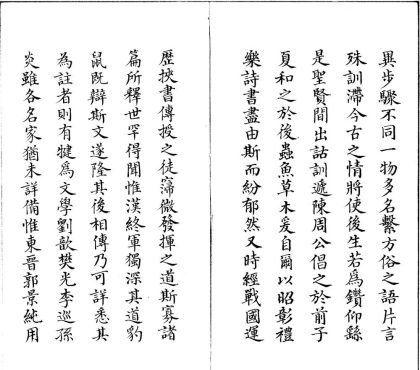 異步驟不同一物多名繫方俗之語片言
殊訓滯今古之情將使後生若爲鑽仰繇
是聖賢間出詁訓遞陳周公倡之於前子
夏和之於後蟲魚草木爰自爾以昭彰禮
樂詩書盡由斯而紛郁然又時經戰國運
歷挾書傳授之徒寖微發揮之道斯寡諸
篇所釋世罕得聞惟漢終軍獨深其道豹
鼠既辯斯文遂隆其後相傳乃可詳悉其
為註者則有犍為文學劉歆樊光李巡孫
炎雖各名家猶未詳備惟東晉郭景純用